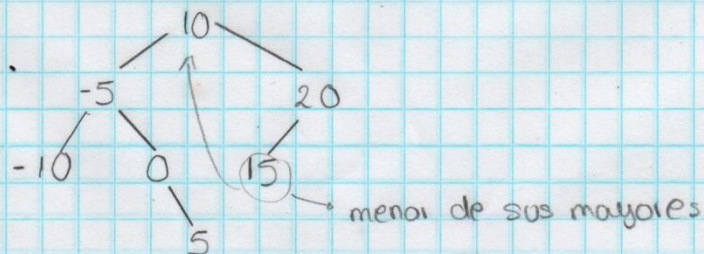 10
-5 20
-10 0 15
menor de sus mayores
5